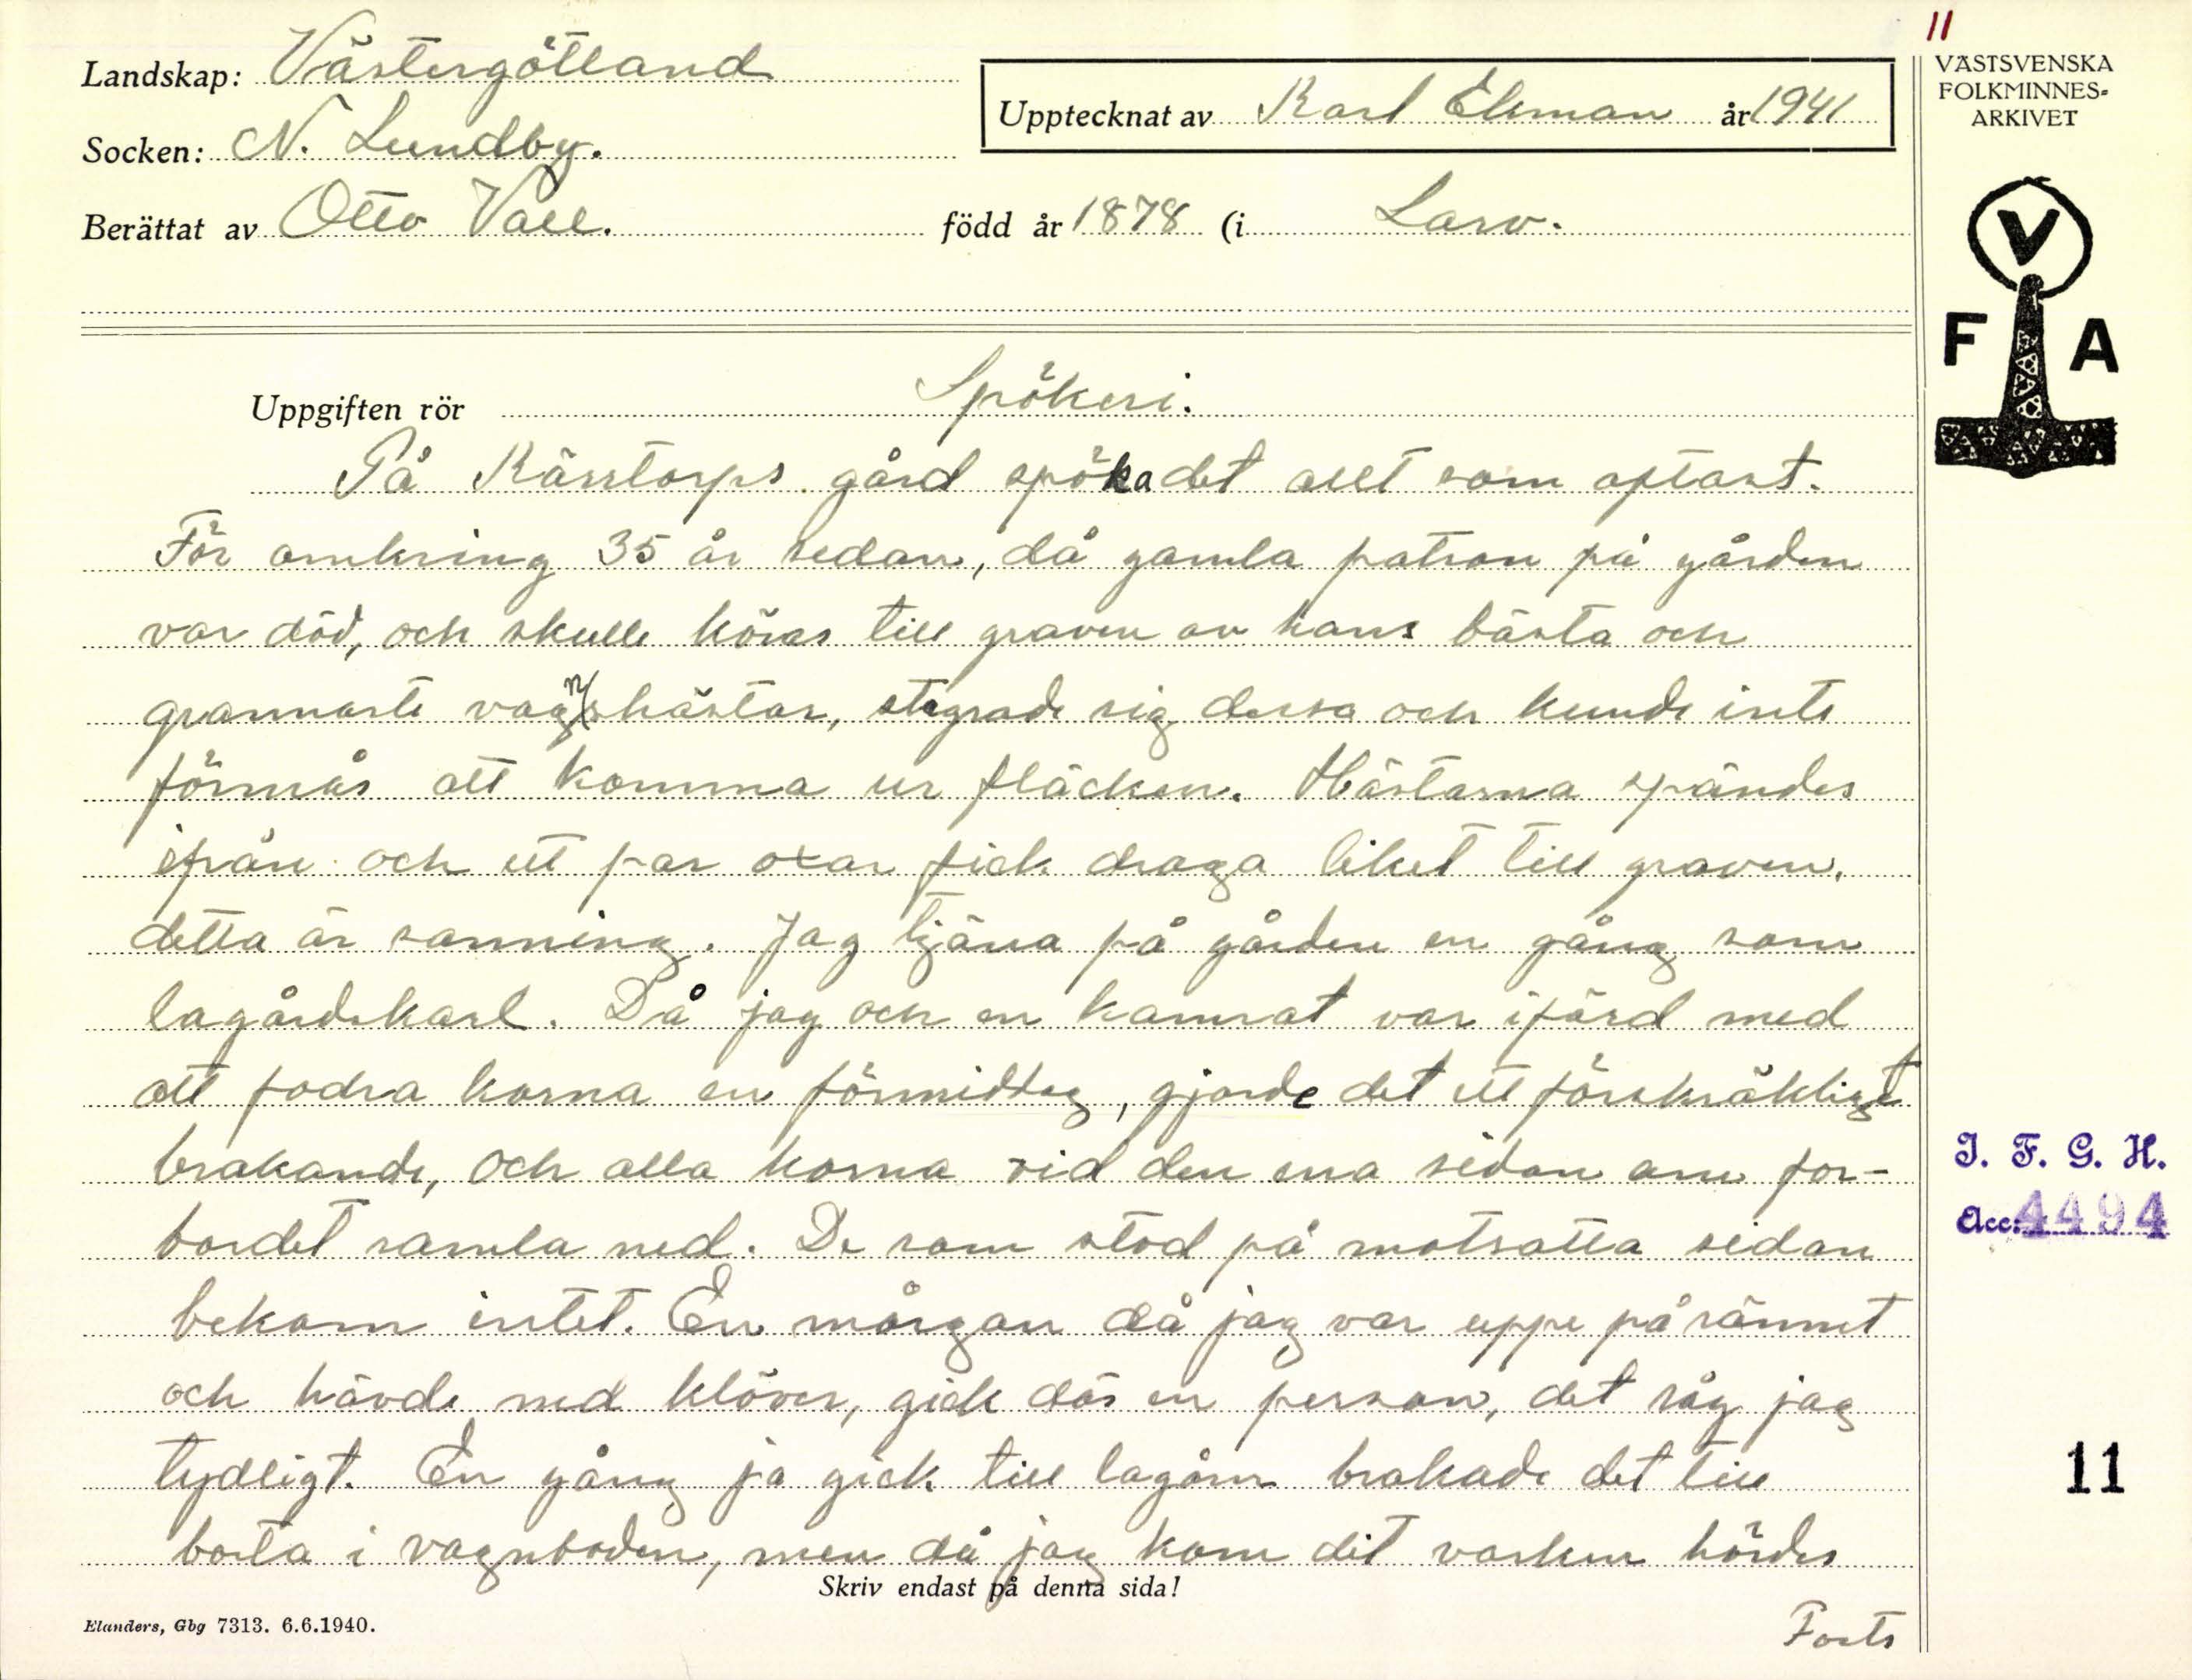 11
Landskap: Västergötland
Upptecknat av Karl Ekman år 1941
VÄSTSVENSKA
FOLKMINNES-
ARKIVET
Socken: N. Lundby.
Berättat av Otto Vall. född år 1878 (i Larv.
V
F A
Uppgiften rör Spökeri.
På Kärstorps gård spöka det allt som oftast.
För omkring 35 år sedan, då gamla patron på gården
var död, och skulle köras till graven av hans bästa och
grannaste vagnshästar, stegrade sig dessa och kunde inte
förmås att komma ur fläcken. Hästarna spändes
ifrån och ett par oxar fick draga liket till graven,
detta är sanning. Jag tjäna på gården en gång som
lagårdskarl. Då jag och en kamrat var ifärd med
att fodra korna en förmiddag, gjorde det ett förskräckligt
brakande, och alla korna vid den ena sidan om for-
bordet ramla ned. De som stod på motsatta sidan
bekom intet. En mårgon då jag var uppe på rännet
och hävde ned klöver, gick där en person, det såg jag
tydligt. En gång ja gick till lagårn brakade det till
borta i vagnboden, men då jag kom dit varken hördes
Skriv endast på denna sida!
Forts
Elanders, Gbg 7313. 6.6.1940.
I. F. G. H.
Acc: 4494
11